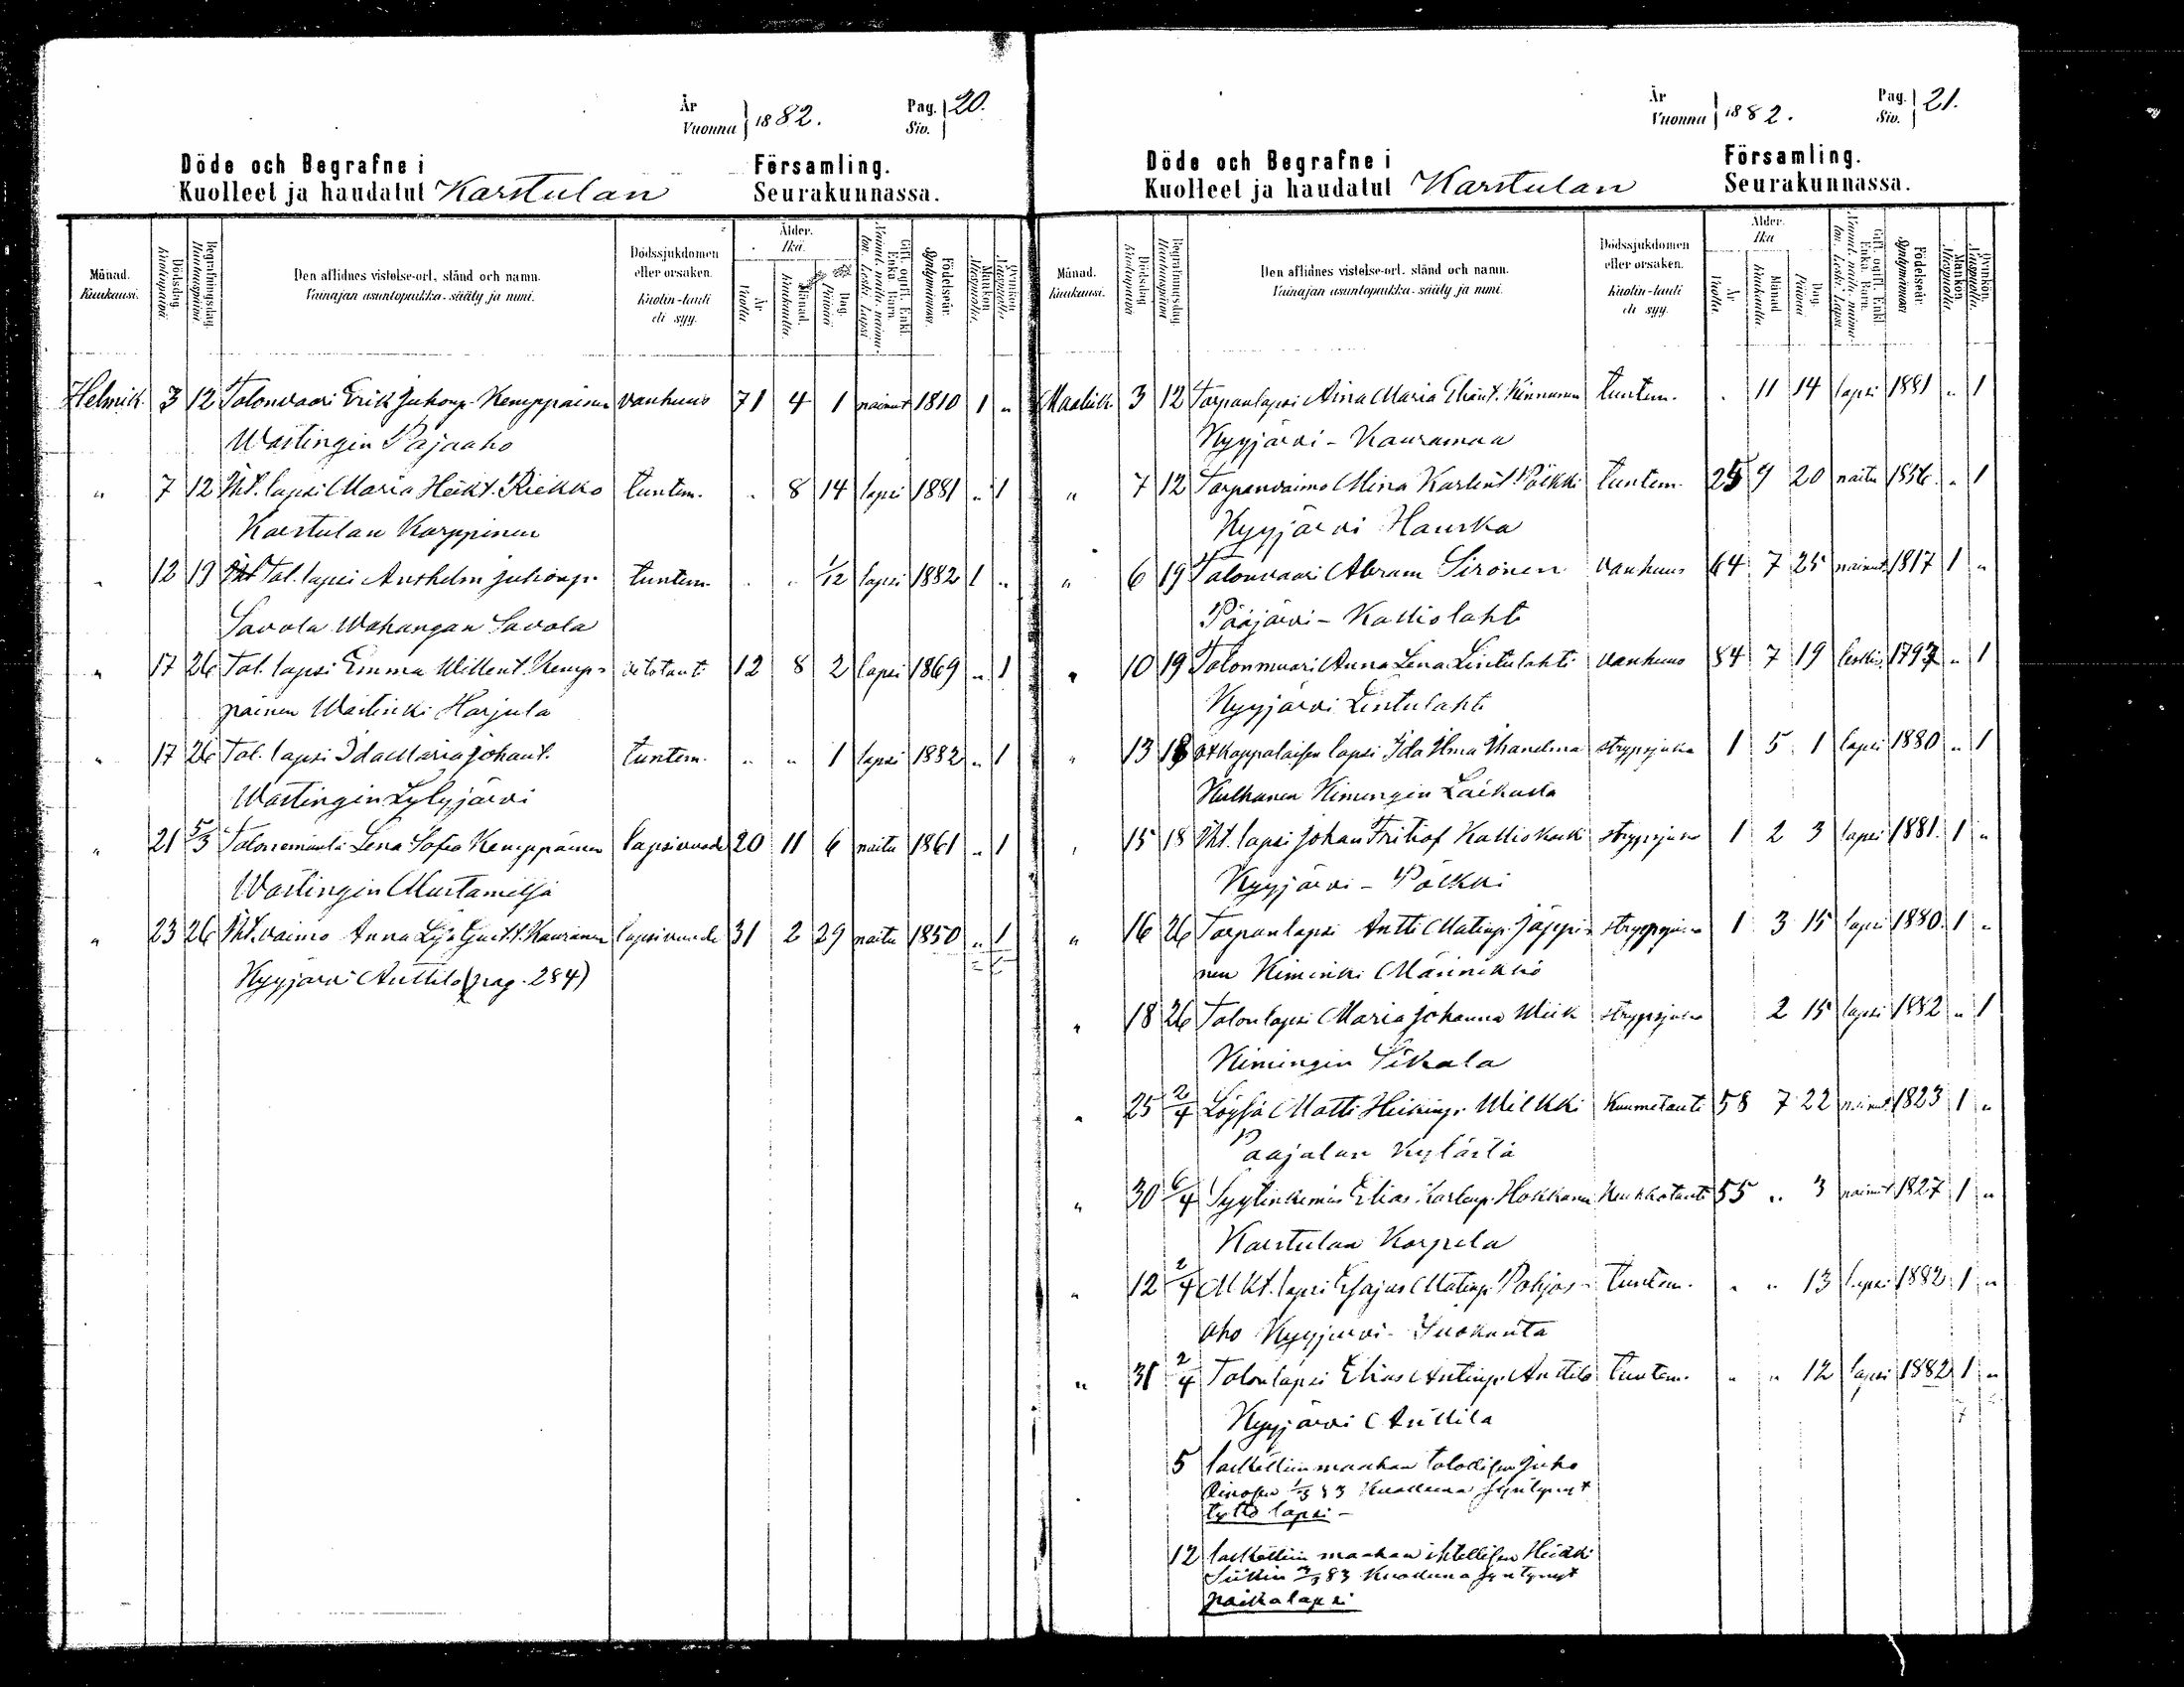 År
Vuonna 1882.
Pag.
Siv. 20.
Döde och Begrafne i Församling.
Kuolleet ja haudatut Karstulan Seurakunnassa.
Månad.
Kuukausi.
Dödsdag.
Kuolinpäivä.
Begrafningsdag.
Hautauspäivä.
Den aflidnes vistelse-ort, stånd och namn.
Vainajan asuntopaikka, sääty ja nimi.
Dödssjukdomen
eller orsaken.
Kuolin-tauti
eli syy.
Ålder.
Ikä.
År.
Vuotta
Månad.
Kuukautta
Dag.
Päivää
Gift, ogift, Enkl.
Enka, Barn.
Födelseår.
Syntymävuosi.
Mankön
Miespuolia.
Qvinkön.
Helmik. 3 12 Talonvaari Erik Juhonp. Kemppainen vanhuus 71 4 1 nainut 1810 1 "
Wastingin Pajaaho
" 7 12 Iht. lapsi Maria Heikt. Riekko tuntem. . 8 14 lapsi 1881 " 1
Karstulan Karppinen
" 12 19 Tal. lapsi Anshelm Juhonp. tuntem. " " 1/12 lapsi 1882 1 "
Savola Wahangan Savola
" 17 26 Tal. lapsi Emma Willent. Kemp- 12 8 2 lapsi 1869 " 1
painen Wastinki Harjula
" 17 26 Tal. lapsi Ida Maria Johant. tuntem. " " 1 lapsi 1882 " 1
Wastingin Lylyjärvi
" 21 5/3 Talonemäntä Lena Sofia Kemppainen lapsivuode 20 11 6 naitu 1861 " 1
Wastingin Mustamiljä
" 23 26 Iht. vaimo Anna Lisa Gust.t. Kauranen lapsivuode 31 2 29 naitu 1850 " 1
Kyyjärvi Anttila (pag. 284)
År
Vuonna 1882.
Pag.
Siv. 21.
Döde och Begrafne i Församling.
Kuolleet ja haudatut Karstulan Seurakunnassa.
Månad.
Kuukausi.
Dödsdag.
Kuolinpäivä
Begrafningsdag
Hautauspäivä
Den aflidnes vistelse-ort, stånd och namn.
Vainajan asuntopaikka, sääty ja nimi.
Dödssjukdomen
eller orsaken.
Kuolin-tauti
eli syy.
Ålder.
Ikä
År.
Vuotta
Månad
Kuukautta
Dag.
Päivää
Gift, ogift, Enkl.
Enka, Barn.
Födelseår.
Syntymävuosi
Mankön.
Miespuolia.
Qvinkön.
Maalisk. 3 12 Torpanlapsi Aina Maria Eliant. Kinnunen tuntem. . 11 14 lapsi 1881 " 1
Kyyjärvi - Kauramaa
" 7 12 Torpanvaimo Mina Karlent. Pölkki tuntem. 25 9 20 naitu 1856 " 1
Kyyjärvi Hauska
" 6 19 Talonvaari Abram Sironen vanhuus 64 7 25 nainut 1817 1 "
Pääjärvi - Kalliolahti
" 10 19 Talonmuori Anna Lena Lintulahti vanhuus 84 7 19 leski 1797 " 1
Kyyjärvi Lintulahti
" 13 18 lapsi Ida Ilma strypsjuka 1 5 1 lapsi 1880 " 1
Hulkanen Kimingin
" 15 18 Iht. lapsi Johan Fritiof Kalliokoski strypsjuka 1 2 3 lapsi 1881. 1 "
Kyyjärvi - Pölkki
" 16 26 Torpanlapsi Antti Matinp. Jäppi- strypsjuka 1 3 15 lapsi 1880. 1 "
nen Kiminki Männikkö
" 18 26 Talonlapsi Maria Johanna Wiik strypsjuka 2 15 lapsi 1882 " 1
Kimingin Sikala
" 25 2/4 Löysä Matti Heikinp. Wilkki Kuumetauti 58 7 22 nainut 1823 1 "
Paajalan kylästä
" 30 6/4 Syytinkimies Elias Karlenp. Hokkanen Keuhkotauti 55 " 3 nainut 1827 1 "
Karstulan Korpela
" 12 2/4 M kt. lapsi Esajas Matinp. Pohjas- tuntem. " " 13 lapsi 1882 1 "
aho Kyyjärvi - Isokanta
" 31 2/4 Talonlapsi Elias Antinp. Anttila tuntem. " " 12 lapsi 1882 1 "
Kyyjärvi Anttila
5 laskettiin maahan talollisen Juho
1/3 83 kuolleena syntynyt
tyttö lapsi -
12 laskettiin maahan itsellisen Heikki
3/3 83 kuolleena syntynyt
poikalapsi